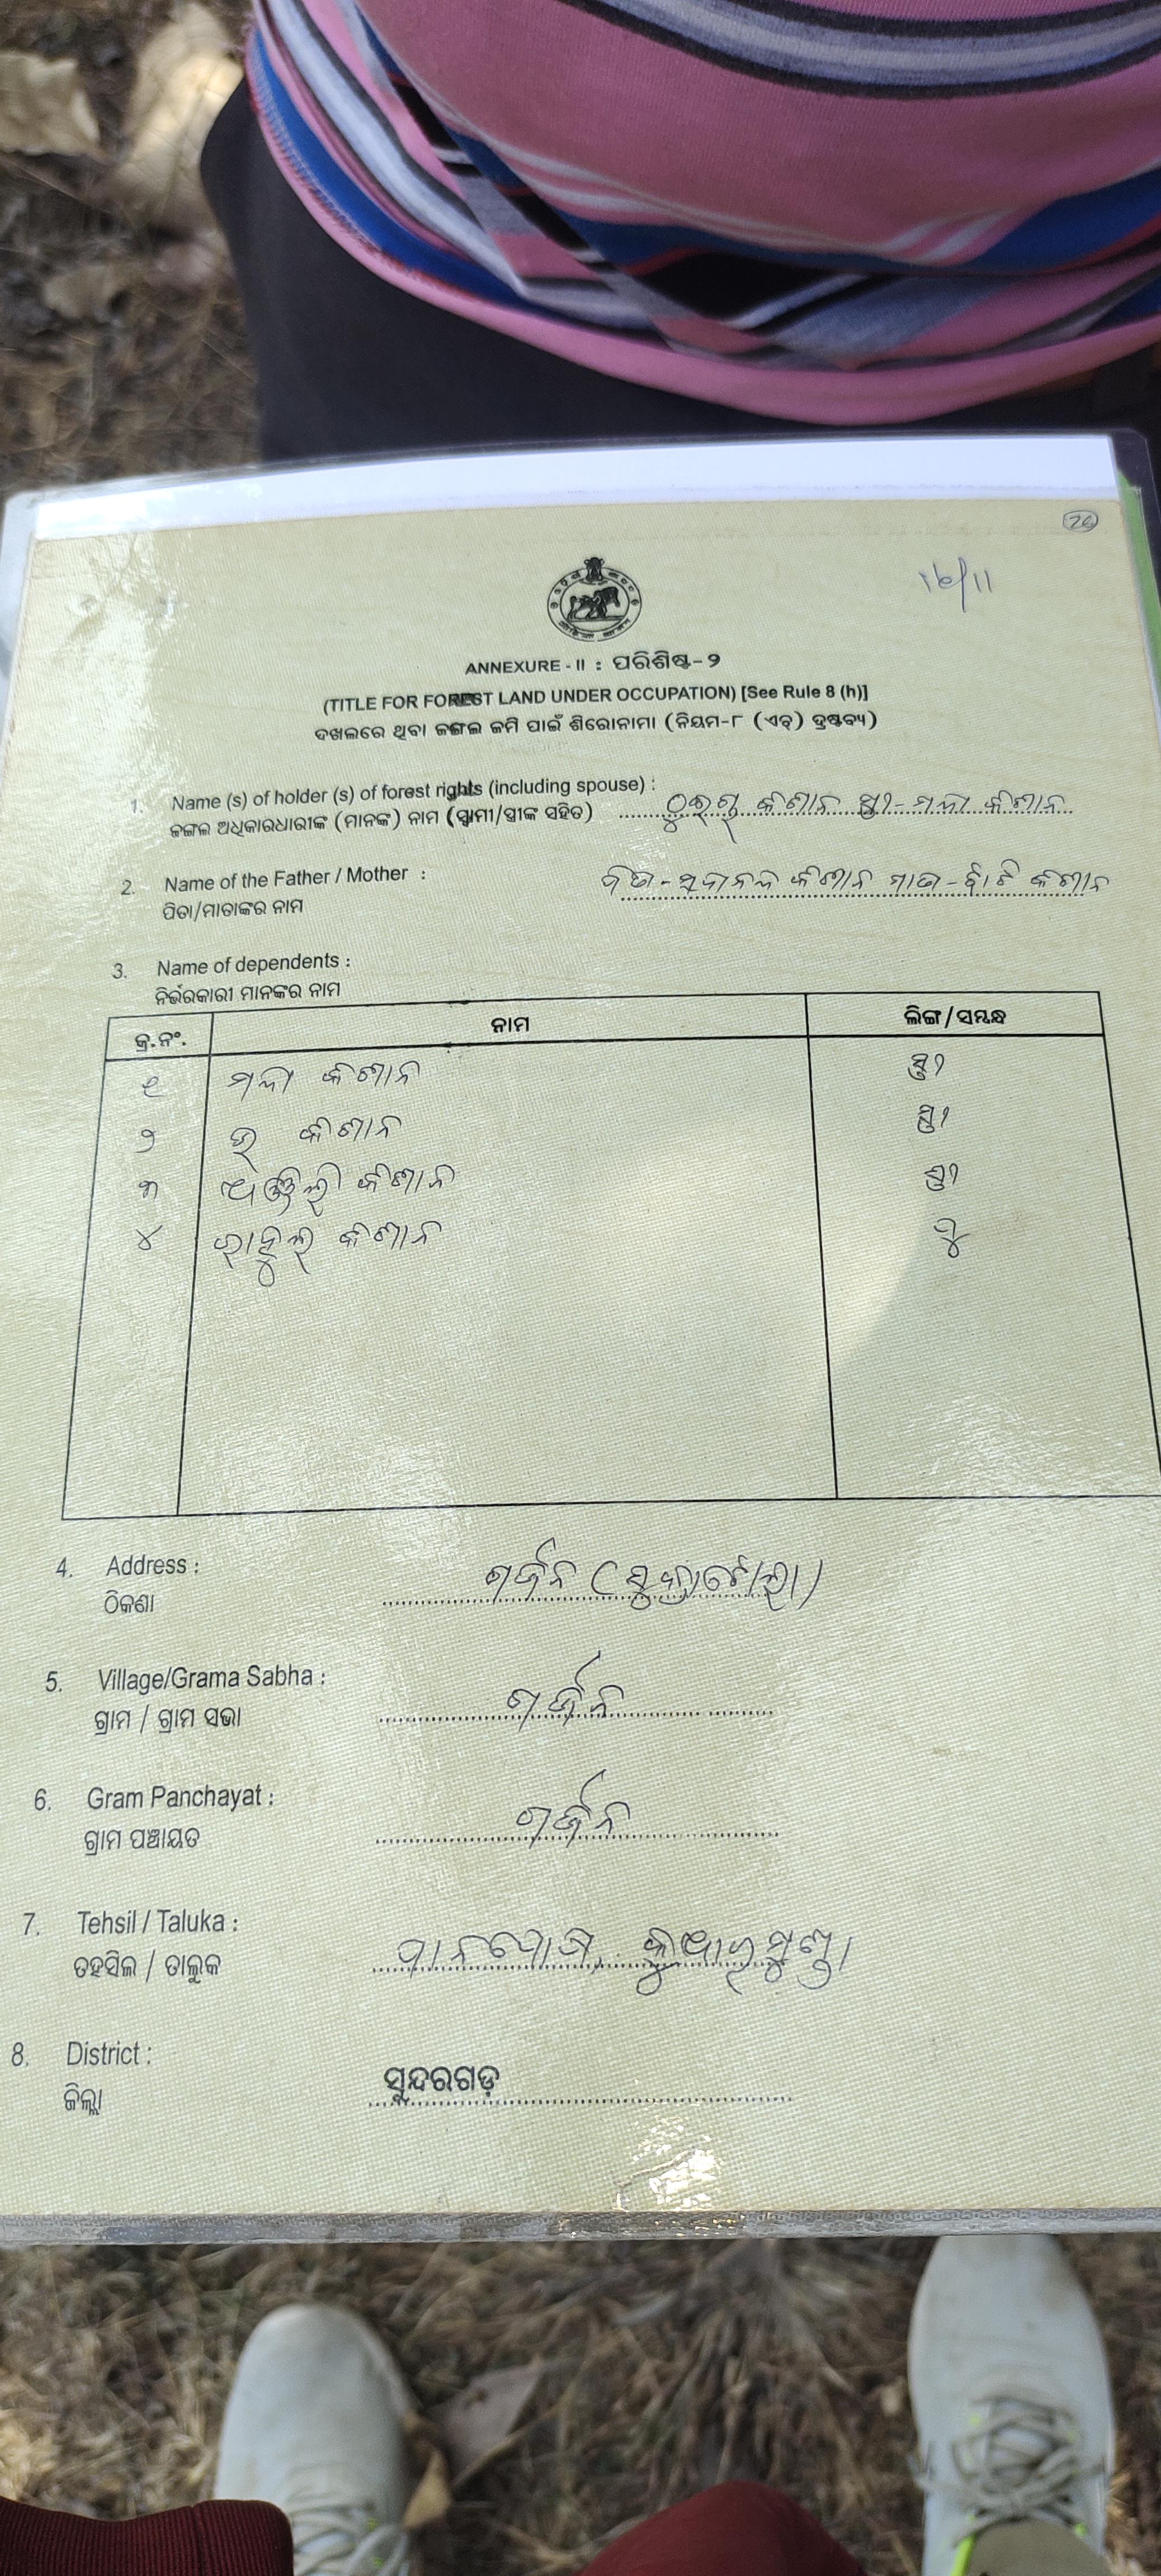 26
16/11
ANNEXURE - II : ପରିଶିଷ୍ଟ-୨
(TITLE FOR FOREST LAND UNDER OCCUPATION) [See Rule 8 (h)]
ଦଖଲରେ ଥିବା ଜଙ୍ଗଲ ଜମି ପାଇଁ ଶିରୋନାମା (ନିୟମ-୮ (ଏଚ୍) ଦ୍ରଷ୍ଟବ୍ୟ)
1. Name (s) of holder (s) of forest rights (including spouse) :
ଜଙ୍ଗଲ ଅଧିକାରଧାରୀଙ୍କ (ମାନଙ୍କ) ନାମ (ସ୍ୱାମୀ/ସ୍ତ୍ରୀଙ୍କ ସହିତ) କିଶାନ ସ୍ତ୍ରୀ- କିଶାନ
2. Name of the Father / Mother :
ପିତା/ମାତାଙ୍କର ନାମ ପିତା- କିଶାନ ମାତା- କିଶାନ
3. Name of dependents :
ନିର୍ଭରକାରୀ ମାନଙ୍କର ନାମ
କ୍ର.ନଂ. ନାମ ଲିଙ୍ଗ/ସମ୍ବନ୍ଧ
୧ କିଶାନ ସ୍ତ୍ରୀ
୨ କିଶାନ ସ୍ତ୍ରୀ
୩ କିଶାନ ସ୍ତ୍ରୀ
୪ ରାହୁଲ କିଶାନ ପୁ
4. Address :
ଠିକଣା ଗର୍ଜନ
5. Village/Grama Sabha :
ଗ୍ରାମ / ଗ୍ରାମ ସଭା ଗର୍ଜନ
6. Gram Panchayat :
ଗ୍ରାମ ପଞ୍ଚାୟତ ଗର୍ଜନ
7. Tehsil / Taluka :
ତହସିଲ / ତାଲୁକ କୁଆରମୁଣ୍ଡା
8. District :
ଜିଲ୍ଲା ସୁନ୍ଦରଗଡ଼